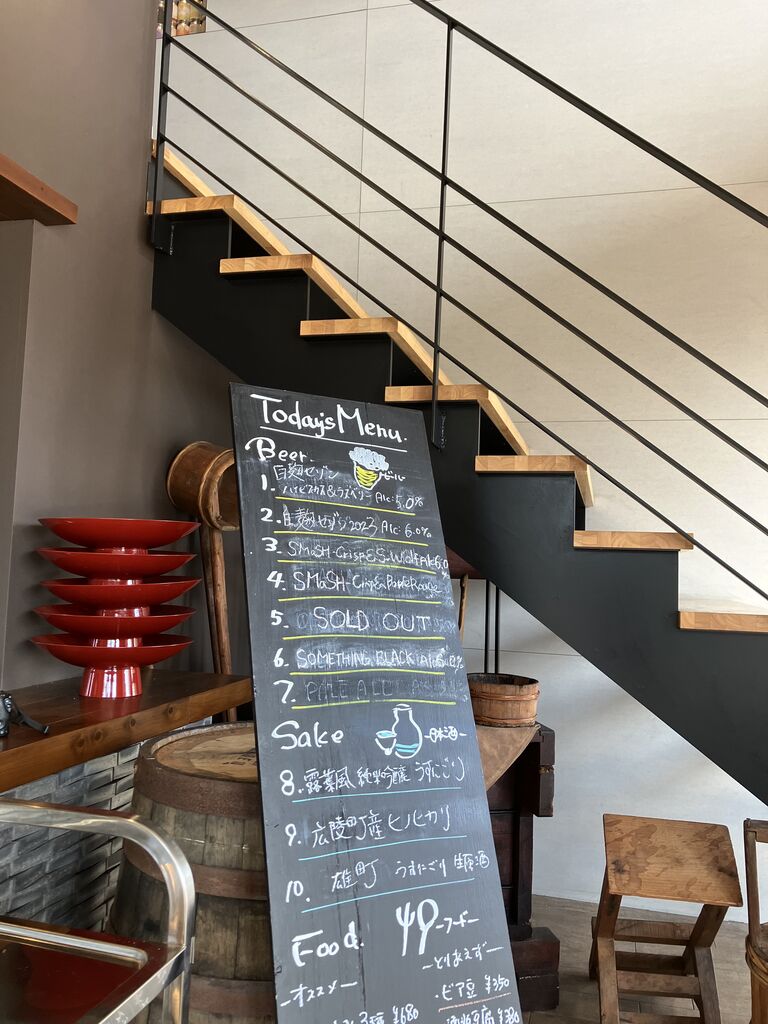 Today's Menu.
Beer ビール
1. 白麹セゾン
ハイビスカス&ラズベリー Alc: 5.0%
2. 白麹セゾン2023 Alc: 6.0%
3. SMaSH-Crisp & S-Wolf Alc 6.0
4. SMaSH-Crisp &
5. SOLD OUT
6. SOMETHING BLACK
7. PALE ALE
Sake -日本酒-
8. 露葉風 純米吟醸 うすにごり
9. 広陵町産ヒノヒカリ
10. 雄町 うすにごり 生原酒
Food. -フード-
-オススメ-
-とりあえず-
・ビア豆 ¥350
3種 ¥680
豆腐 ¥380